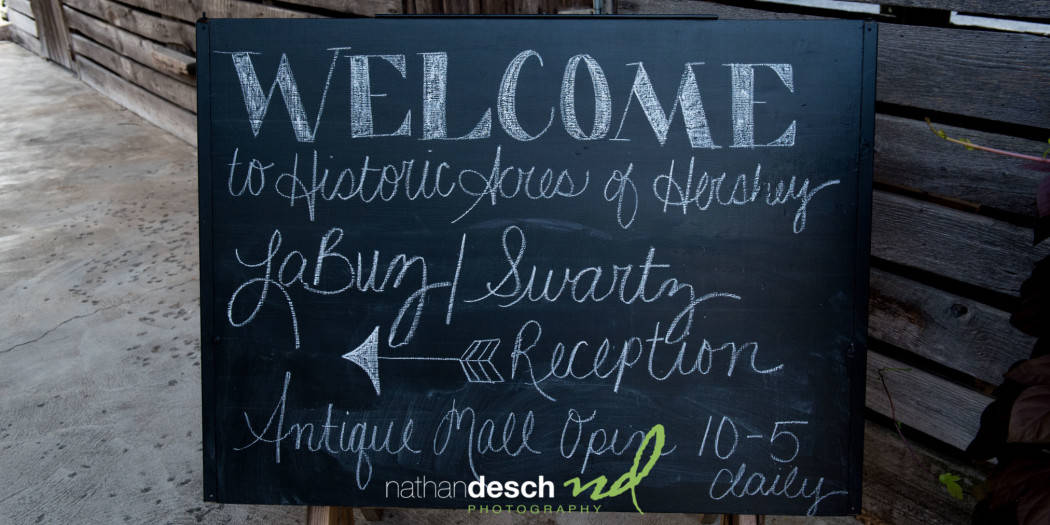 WELCOME
to Historic Acres of Hershey
LaBuz/Swartz
Reception
Antique Mall Open 10-5
daily
nathandesch nd
PHOTOGRAPHY